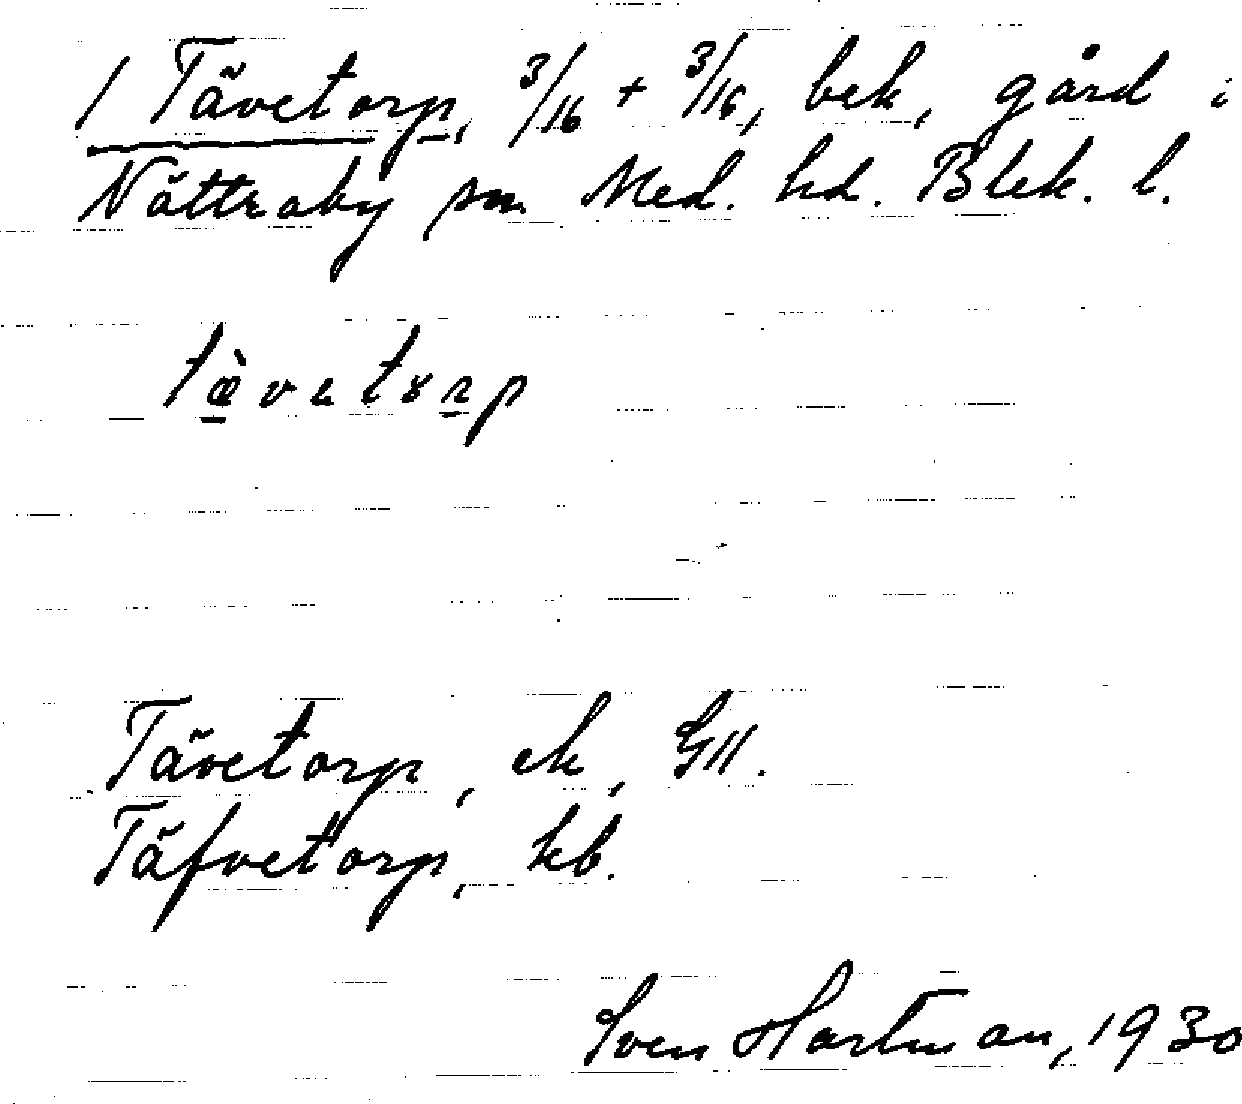 1 Tävetorp, 3/16 + 3/16, bek, gård i
Nättraby sn Med. hd. Blek. l.
Tävetorp, ek, GII.
Täfvetorp, kb.
Sven Hartman, 1930